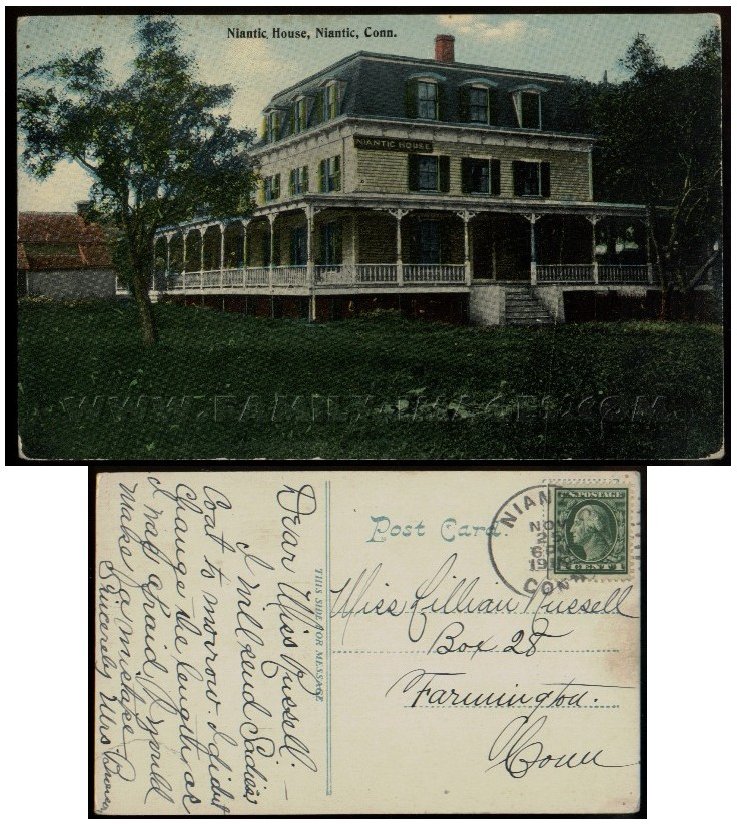 Niantic House, Niantic, Conn.
NIANTIC HOUSE
WWW.FAMILY-IMAGES.COM
Post Card.
NIAN
NOV
25
6 P
191
CONN
U.S. POSTAGE
1 CENT 1
THIS SIDE FOR MESSAGE
Dear Miss Russell. –
I will send Sadie's
Coat to morrow. I didn't
Change the length as
I was afraid I would
make a mistake
Sincerely Mrs
Miss Lillian Russell
Box 28
Farmington.
Conn